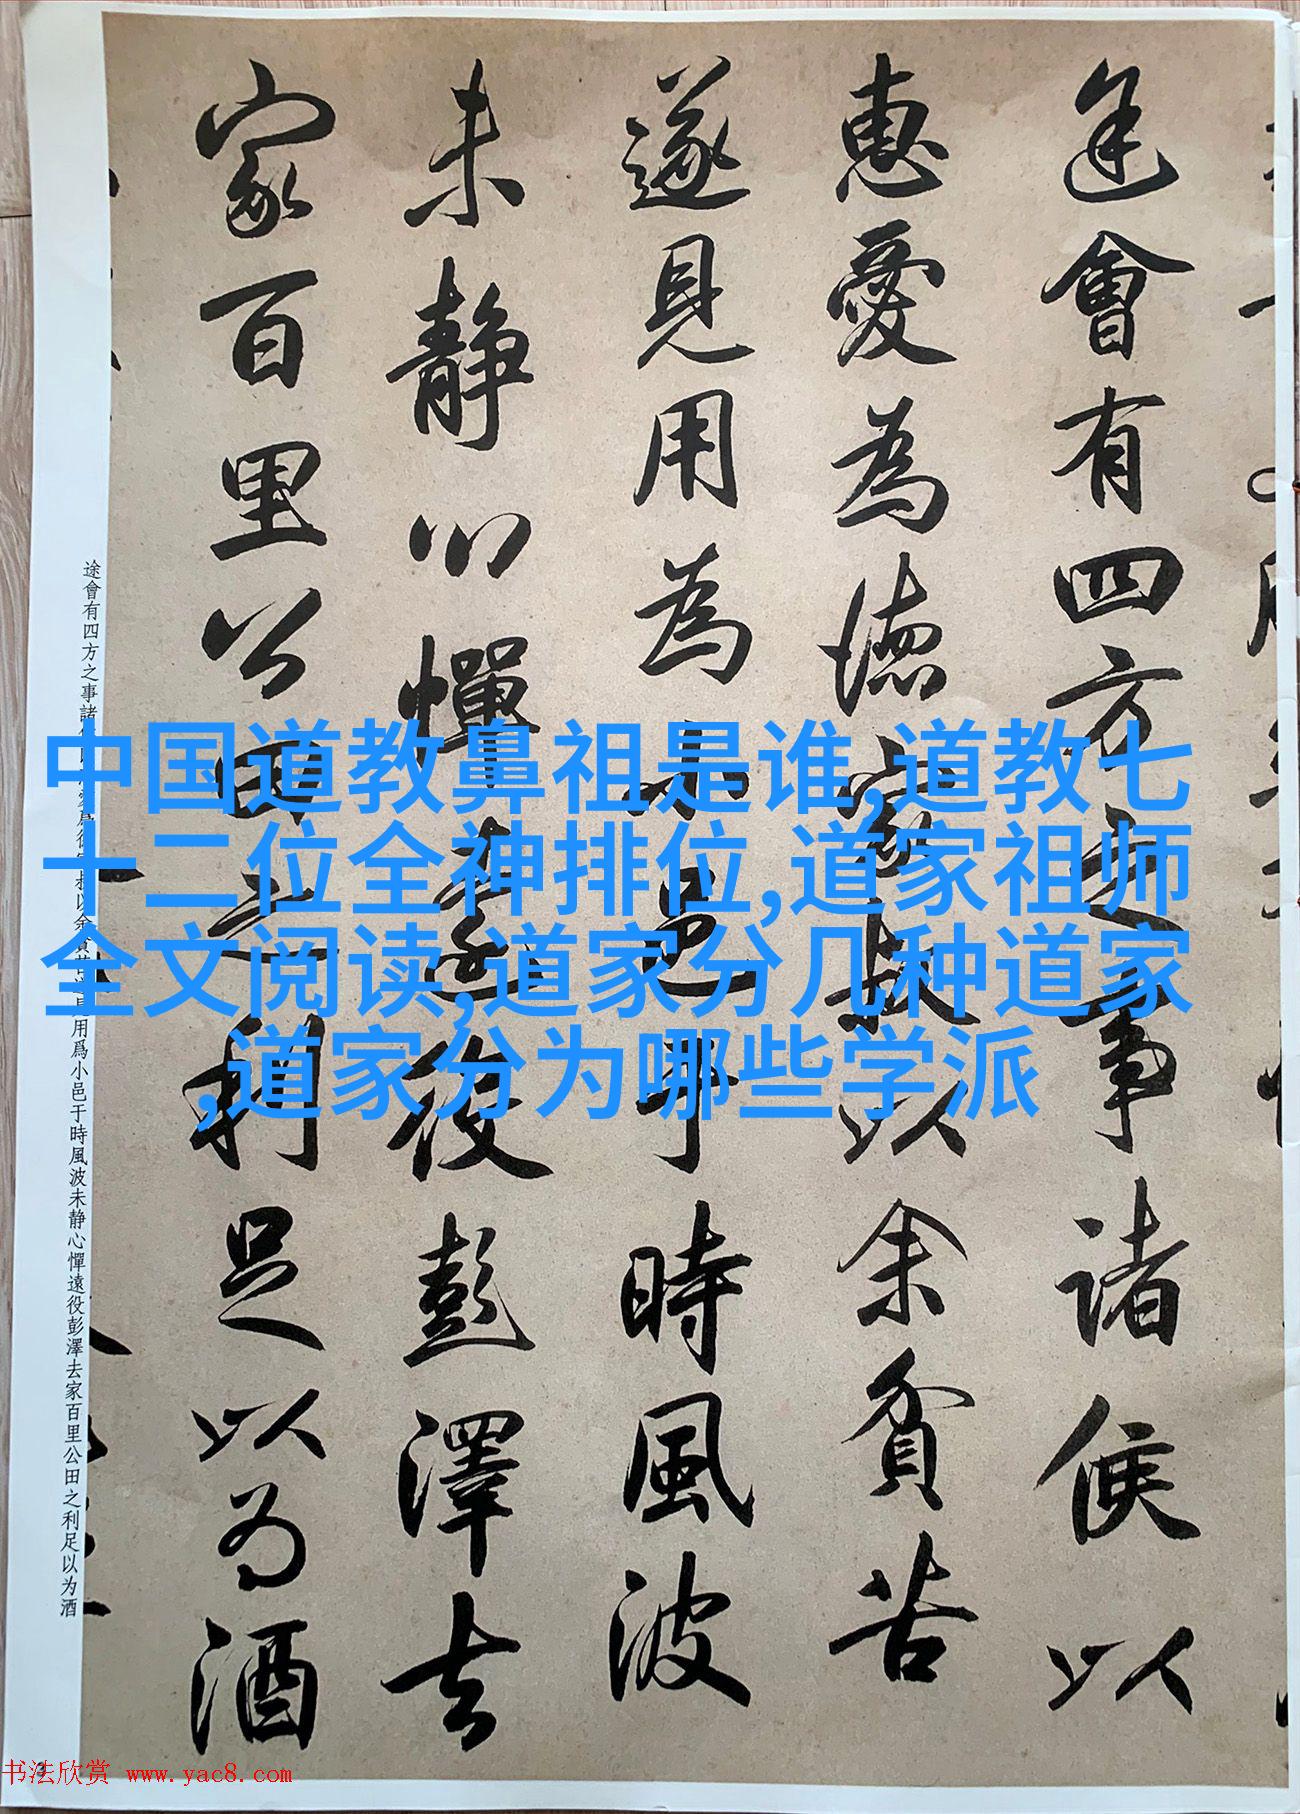 途會有四方之事諸侯以
惠愛為德家叔以余貧苦
遂見用為小邑于時風波
未靜心憚遠役彭澤去
家百里公田之利足以為酒
途會有四方之事諸
用爲小邑于時風波未静心憚遠役彭澤去家百里公田之利足以为酒
中国道教鼻祖是谁,道教七
十二位全神排位,道家祖师
全文阅读,道家分几种道家
,道家分为哪些学派
3
书法欣赏 www.yac8.com